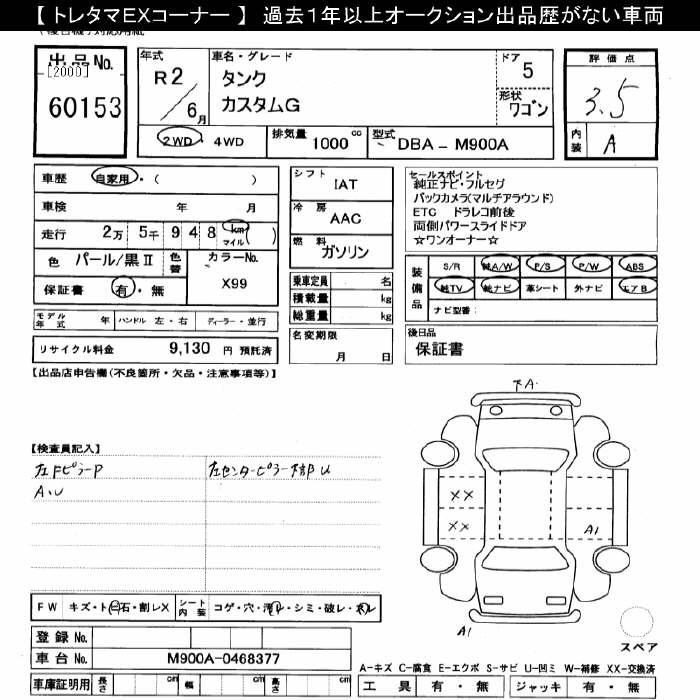 【 トレタマEXコーナー 】 過去1年以上オークション出品歴がない車両
出品No.
[2000]
60153
年式
R2/6月
車名・グレード
タンク
カスタムG
ドア
5
形状
ワゴン
2WD ・ 4WD
排気量
1000 cc
型式
DBA - M900A
評価点
3.5
内装
A
車歴 自家用・( )
車検 年 月
走行 2万 5千 9 4 8 km マイル ( )
色 パール/黒Ⅱ 色替
カラーNo.
X99
保証書 有・無
モデル年式 年 ハンドル 左・右 ディーラー・並行
リサイクル料金 9,130 円 預託済
シフト
IAT
冷房
AAC
燃料
ガソリン
乗車定員 名
積載量 kg
総重量 kg
名変期限
月 日
セールスポイント
純正ナビ・フルセグ
バックカメラ(マルチアラウンド)
ETC ドラレコ前後
両側パワースライドドア
☆ワンオーナー☆
装備品
S/R 純A/W P/S P/W ABS
純TV 純ナビ 革シート 外ナビ エアB
ナビ型番:
後日品
保証書
【出品店申告欄(不良箇所・欠品・注意事項等)】
【検査員記入】
左FピラーP
左センターピラー下部U
A.U
下A.
XX
XX
A1
A1
スペア
FW キズ・ト・石・割レX
シート内装 コゲ・穴・汚レ・シミ・破レ・スレ
登録No.
車台No. M900A-0468377
車庫証明用 長さ cm 幅 cm 高さ cm
A-キズ C-腐食 E-エクボ S-サビ U-凹ミ W-補修 XX-交換済
工具 有・無 ジャッキ 有・無